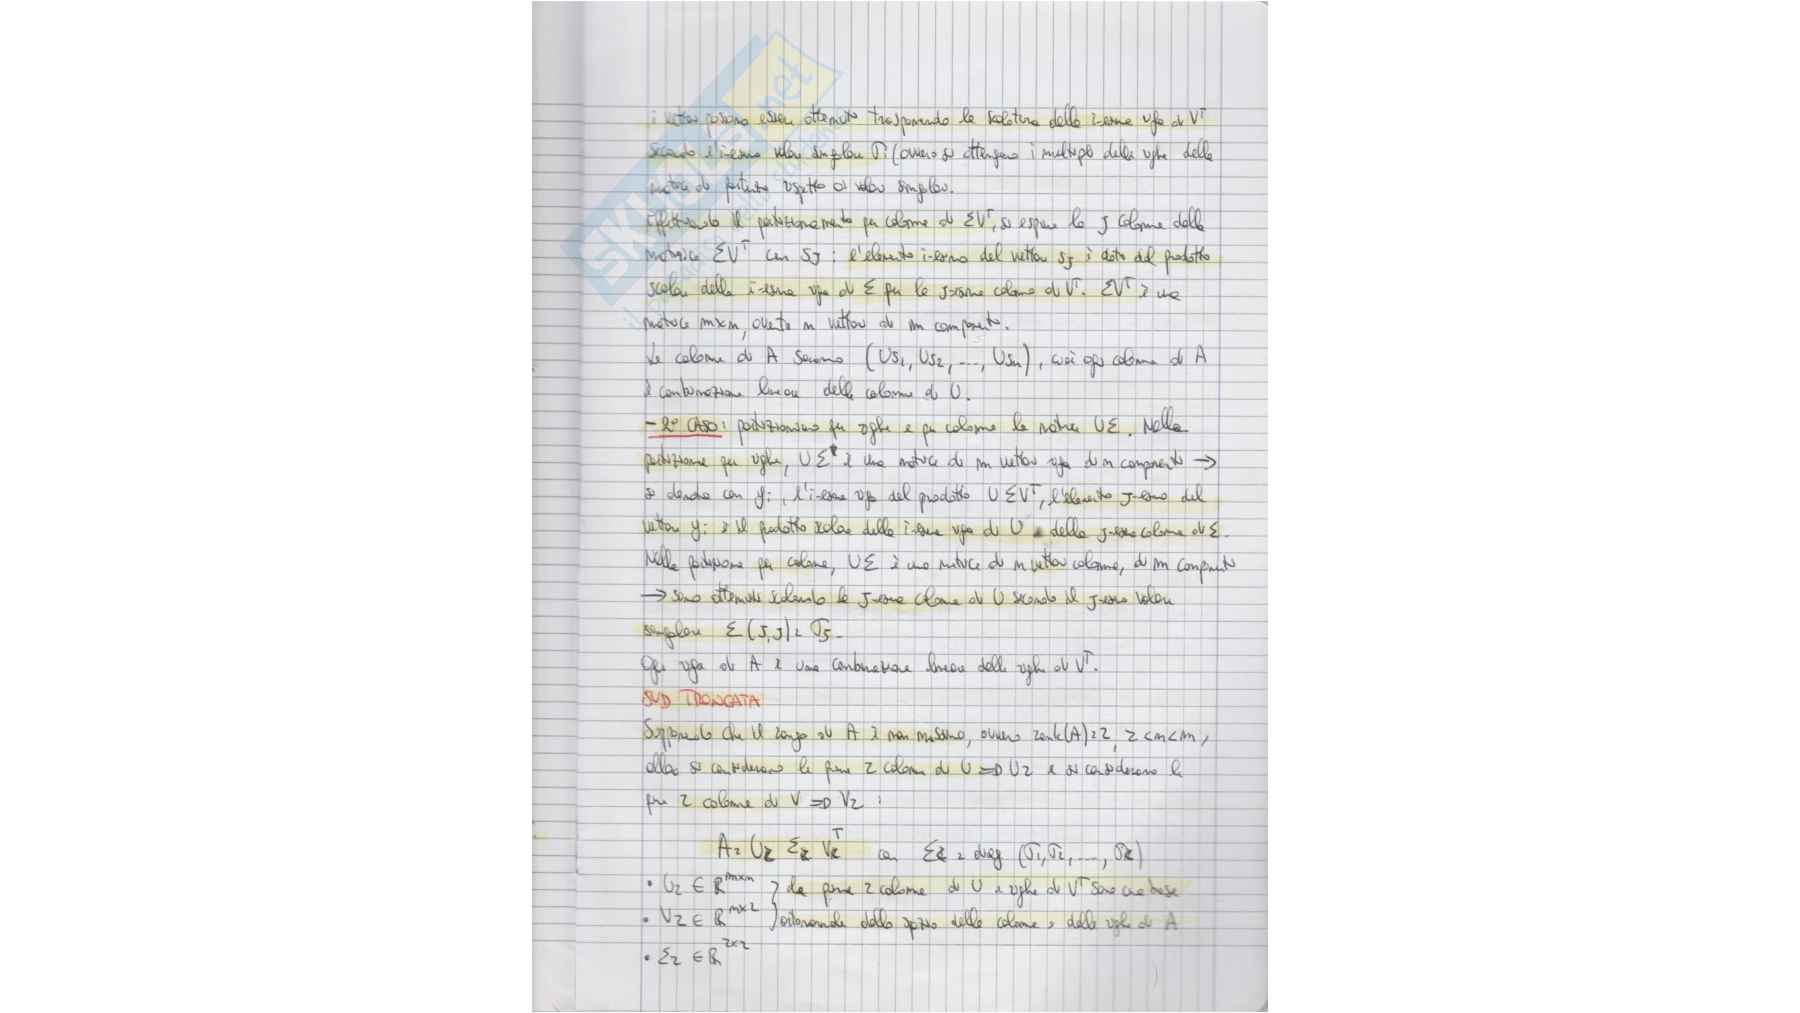 i vettori possono essere ottenuti trasponendo la scalatura della i-esima riga di Vᵀ
secondo l'i-esimo valore singolare σi (ovvero si ottengono i multipli delle righe della
matrice di partenza rispetto ai valori singolari.
Effettuando il partizionamento per colonne di ΣVᵀ, si esprime la j colonna della
matrice ΣVᵀ con sj : l'elemento i-esimo del vettore sj è dato dal prodotto
scalare della i-esima riga di Σ per la j-esima colonna di Vᵀ. ΣVᵀ è una
matrice m×n, avente n vettori di m componenti.
Le colonne di A saranno (Us₁, Us₂, ..., Usn), cioè ogni colonna di A
è combinazione lineare delle colonne di U.
- 2° CASO: partizioniamo per righe e per colonne la matrice UΣ. Nella
partizione per righe, UΣ è una matrice di m vettori riga di n componenti →
si denota con yi, l'i-esima riga del prodotto UΣVᵀ, l'elemento j-esimo del
vettore yi è il prodotto scalare della i-esima riga di U e della j-esima colonna di Σ.
Nella partizione per colonne, UΣ è una matrice di n vettori colonna, di m componenti
→ sono ottenuti scalando la j-esima colonna di U secondo il j-esimo valore
singolare Σ(j,j) = σj.
Ogni riga di A è una combinazione lineare delle righe di Vᵀ.
SVD TRONCATA
Supponendo che il rango di A è non massimo, ovvero rank(A)=r, r<n<m,
allora si considerano le prime r colonne di U ⇒ Ur e si considerano le
prime r colonne di V ⇒ Vr :
A = Ur Σr Vrᵀ con Σr = diag (σ₁, σ₂, ..., σr)
• Ur ∈ ℝ } le prime r colonne di U e righe di Vᵀ sono una base
• Vr ∈ ℝ } ortonormale dello spazio delle colonne e delle righe di A
• Σr ∈ ℝ^r×r
SKUOLA.net